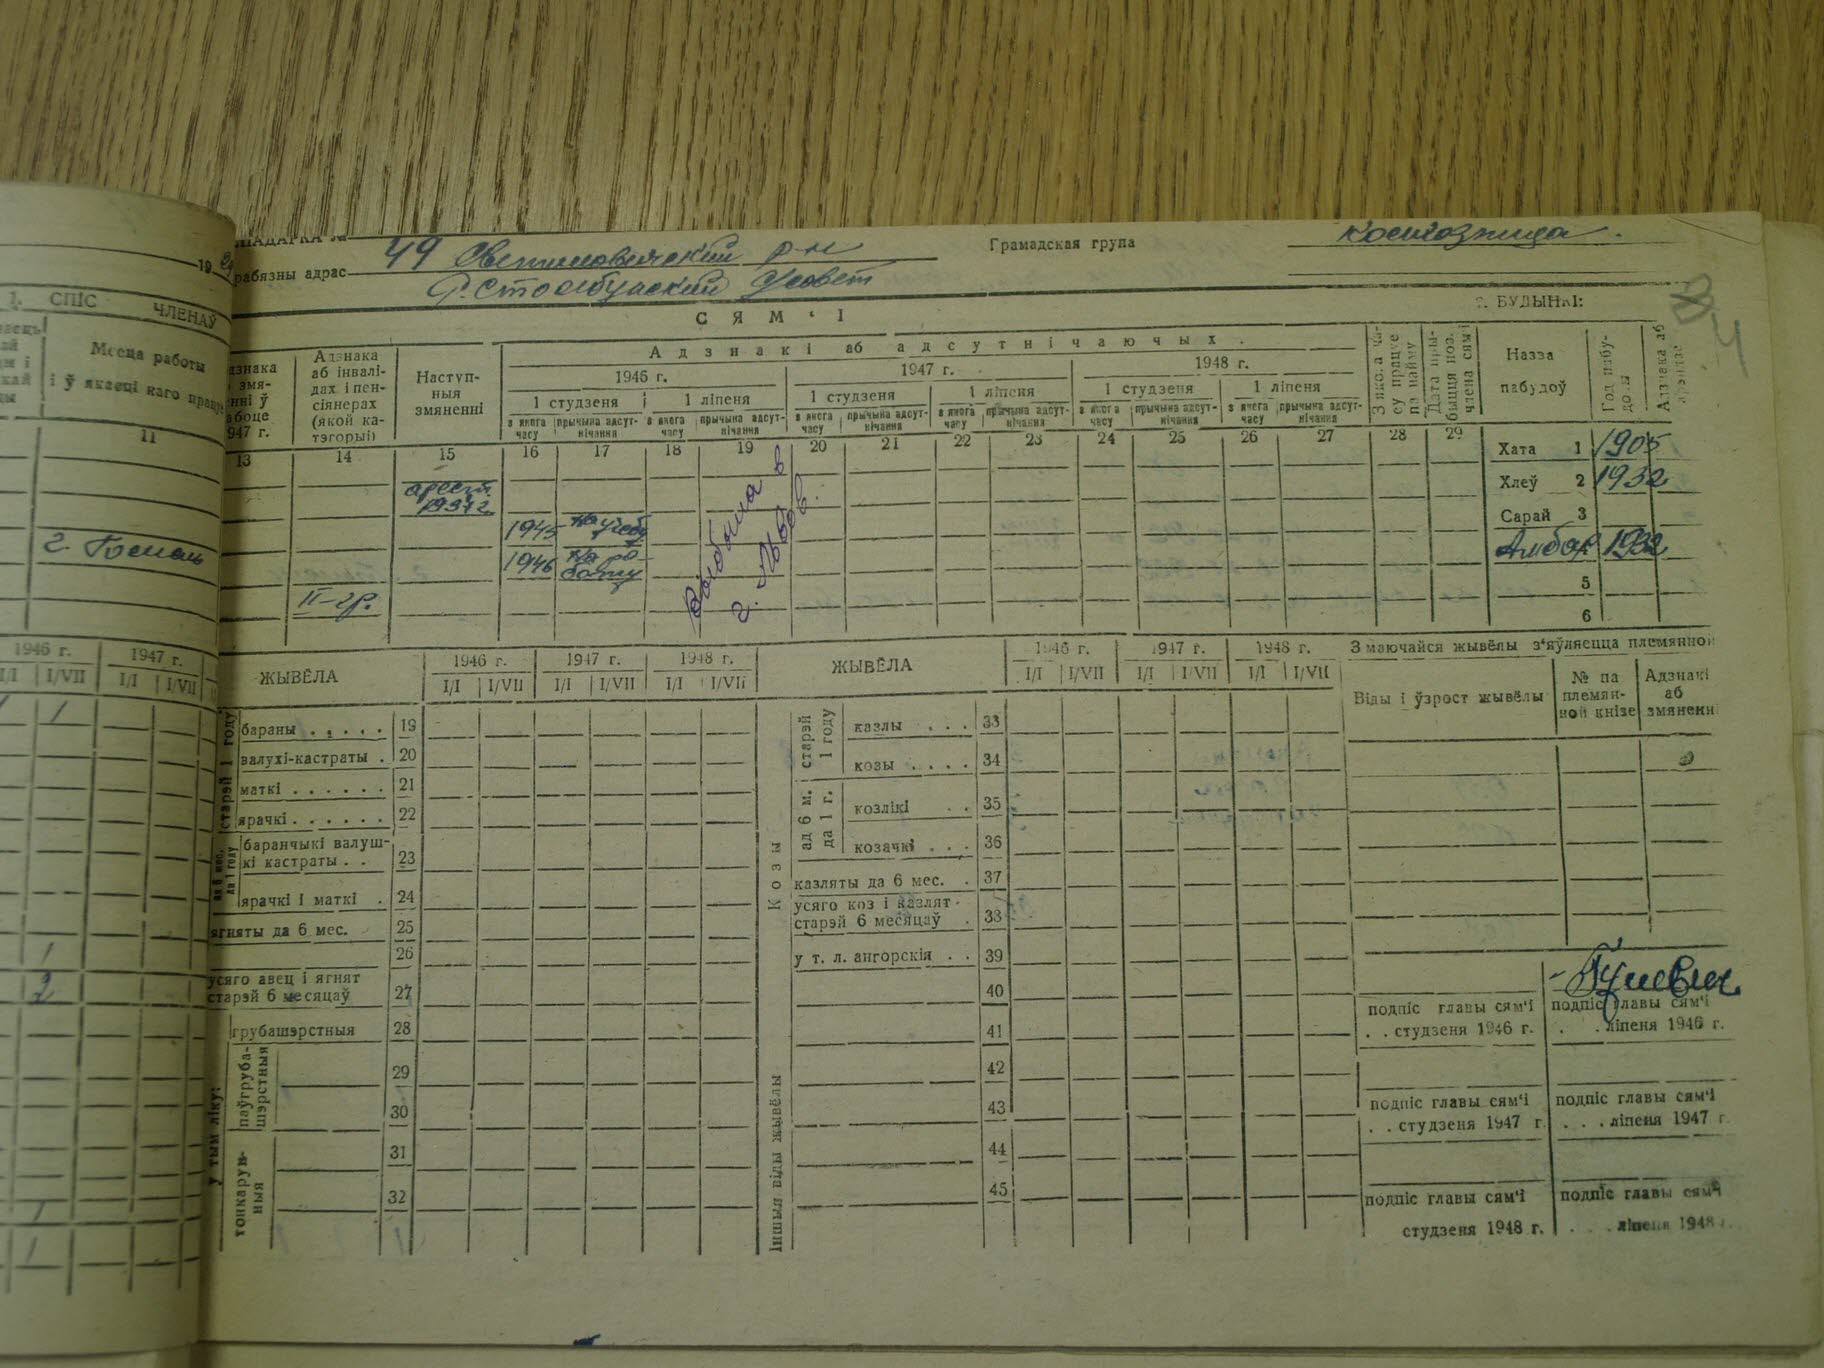 49 Светиловичский р-н
Грамадская група
колхозница.
рабязны адрас
Р. Столбунский С/совет
19
1. СПІС ЧЛЕНАЎ
СЯМ‘І
БУДЫНКІ:
84
Месца работы і ў якасці каго працуе
Адзнака аб інвалідах і пенсіянерах (якой катэгорыі)
Наступныя змяненні
Адзнакі аб адсутнічаючых.
1946 г.
1947 г.
1948 г.
1 студзеня
1 ліпеня
1 студзеня
1 ліпеня
1 студзеня
1 ліпеня
з якога часу
прычына адсутнічання
з якога часу
прычына адсутнічання
з якога часу
прычына адсутнічання
з якога часу
прычына адсутнічання
з якога часу
прычына адсутнічання
з якога часу
прычына адсутнічання
Назва пабудоў
11
13 14 15 16 17 18 19 20 21 22 23 24 25 26 27 28 29
Хата 1 1905
арест. 1937 г.
Хлеў 2 1932
Сарай 3
1945 на учебу
Амбар 1932
1946 на работу
5
II-гр.
6
выбыла в г. Львов.
1946 г. 1947 г.
I/I I/VII I/I I/VII
ЖЫВЁЛА
1946 г. 1947 г. 1948 г.
I/I I/VII I/I I/VII I/I I/VII
ЖЫВЁЛА
1946 г. 1947 г. 1948 г.
I/I I/VII I/I I/VII I/I I/VII
З маючайся жывёлы з‘яўляецца племянной
Віды і ўзрост жывёлы
№ па племянной кнізе
Адзнакі аб змяненн
старэй 1 году
бараны . . . . . 19
валухі-кастраты . 20
маткі . . . . . . 21
ярачкі . . . . . . 22
баранчыкі валушкі кастраты . . 23
ярачкі і маткі . 24
ягняты да 6 мес. 25
26
усяго авец і ягнят старэй 6 месяцаў 27
грубашэрстныя 28
у тым ліку:
паўгрубашэрстныя
29
30
тонкарунныя
31
32
Козы
старэй 1 году
казлы . . . 33
козы . . . . 34
ад 6 м. да 1 г.
козлікі . . 35
козачкі . . . 36
казляты да 6 мес. . 37
усяго коз і казлят старэй 6 месяцаў . 38
у т. л. ангорскія . . 39
40
41
Іншыя віды жывёлы
42
43
44
45
подпіс главы сям‘і
. . студзеня 1946 г.
подпіс главы сям‘і
. . ліпеня 1946 г.
подпіс главы сям‘і
. . студзеня 1947 г.
подпіс главы сям‘і
. . . ліпеня 1947 г.
подпіс главы сям‘і
студзеня 1948 г.
подпіс главы сям‘і
. . . ліпеня 1948 г.